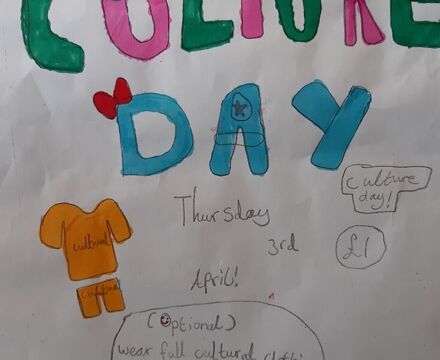 CULTURE
DAY
Culture
day!
Thursday
3rd
£1
April!
cultural
cultural
(Optional)
wear full cultural